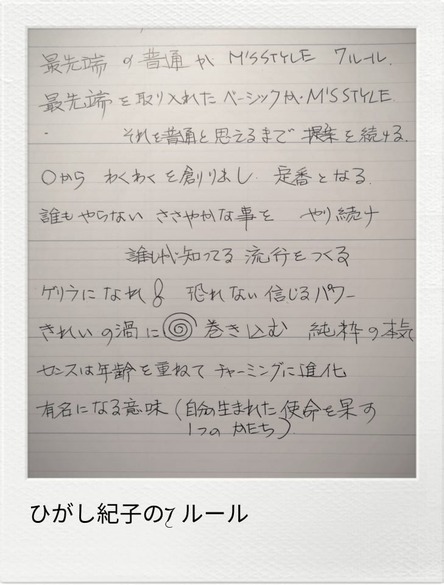 最先端の普通が M'S STYLE 7ルール.
最先端を取り入れたベーシックが・M'S STYLE
・ それを普通と思えるまで 提案を続ける.
0から わくわくを創りまし 定番となる.
誰もやらない ささやかな事を やり続け
誰しもが知ってる 流行をつくる
ゲリラになれ 恐れない信じるパワー
きれいの渦に 巻き込む 純粋の本気
センスは年齢を重ねて チャーミングに進化
有名になる意味(自分の生まれた使命を果す
1つのかたち)
ひがし紀子の7ルール